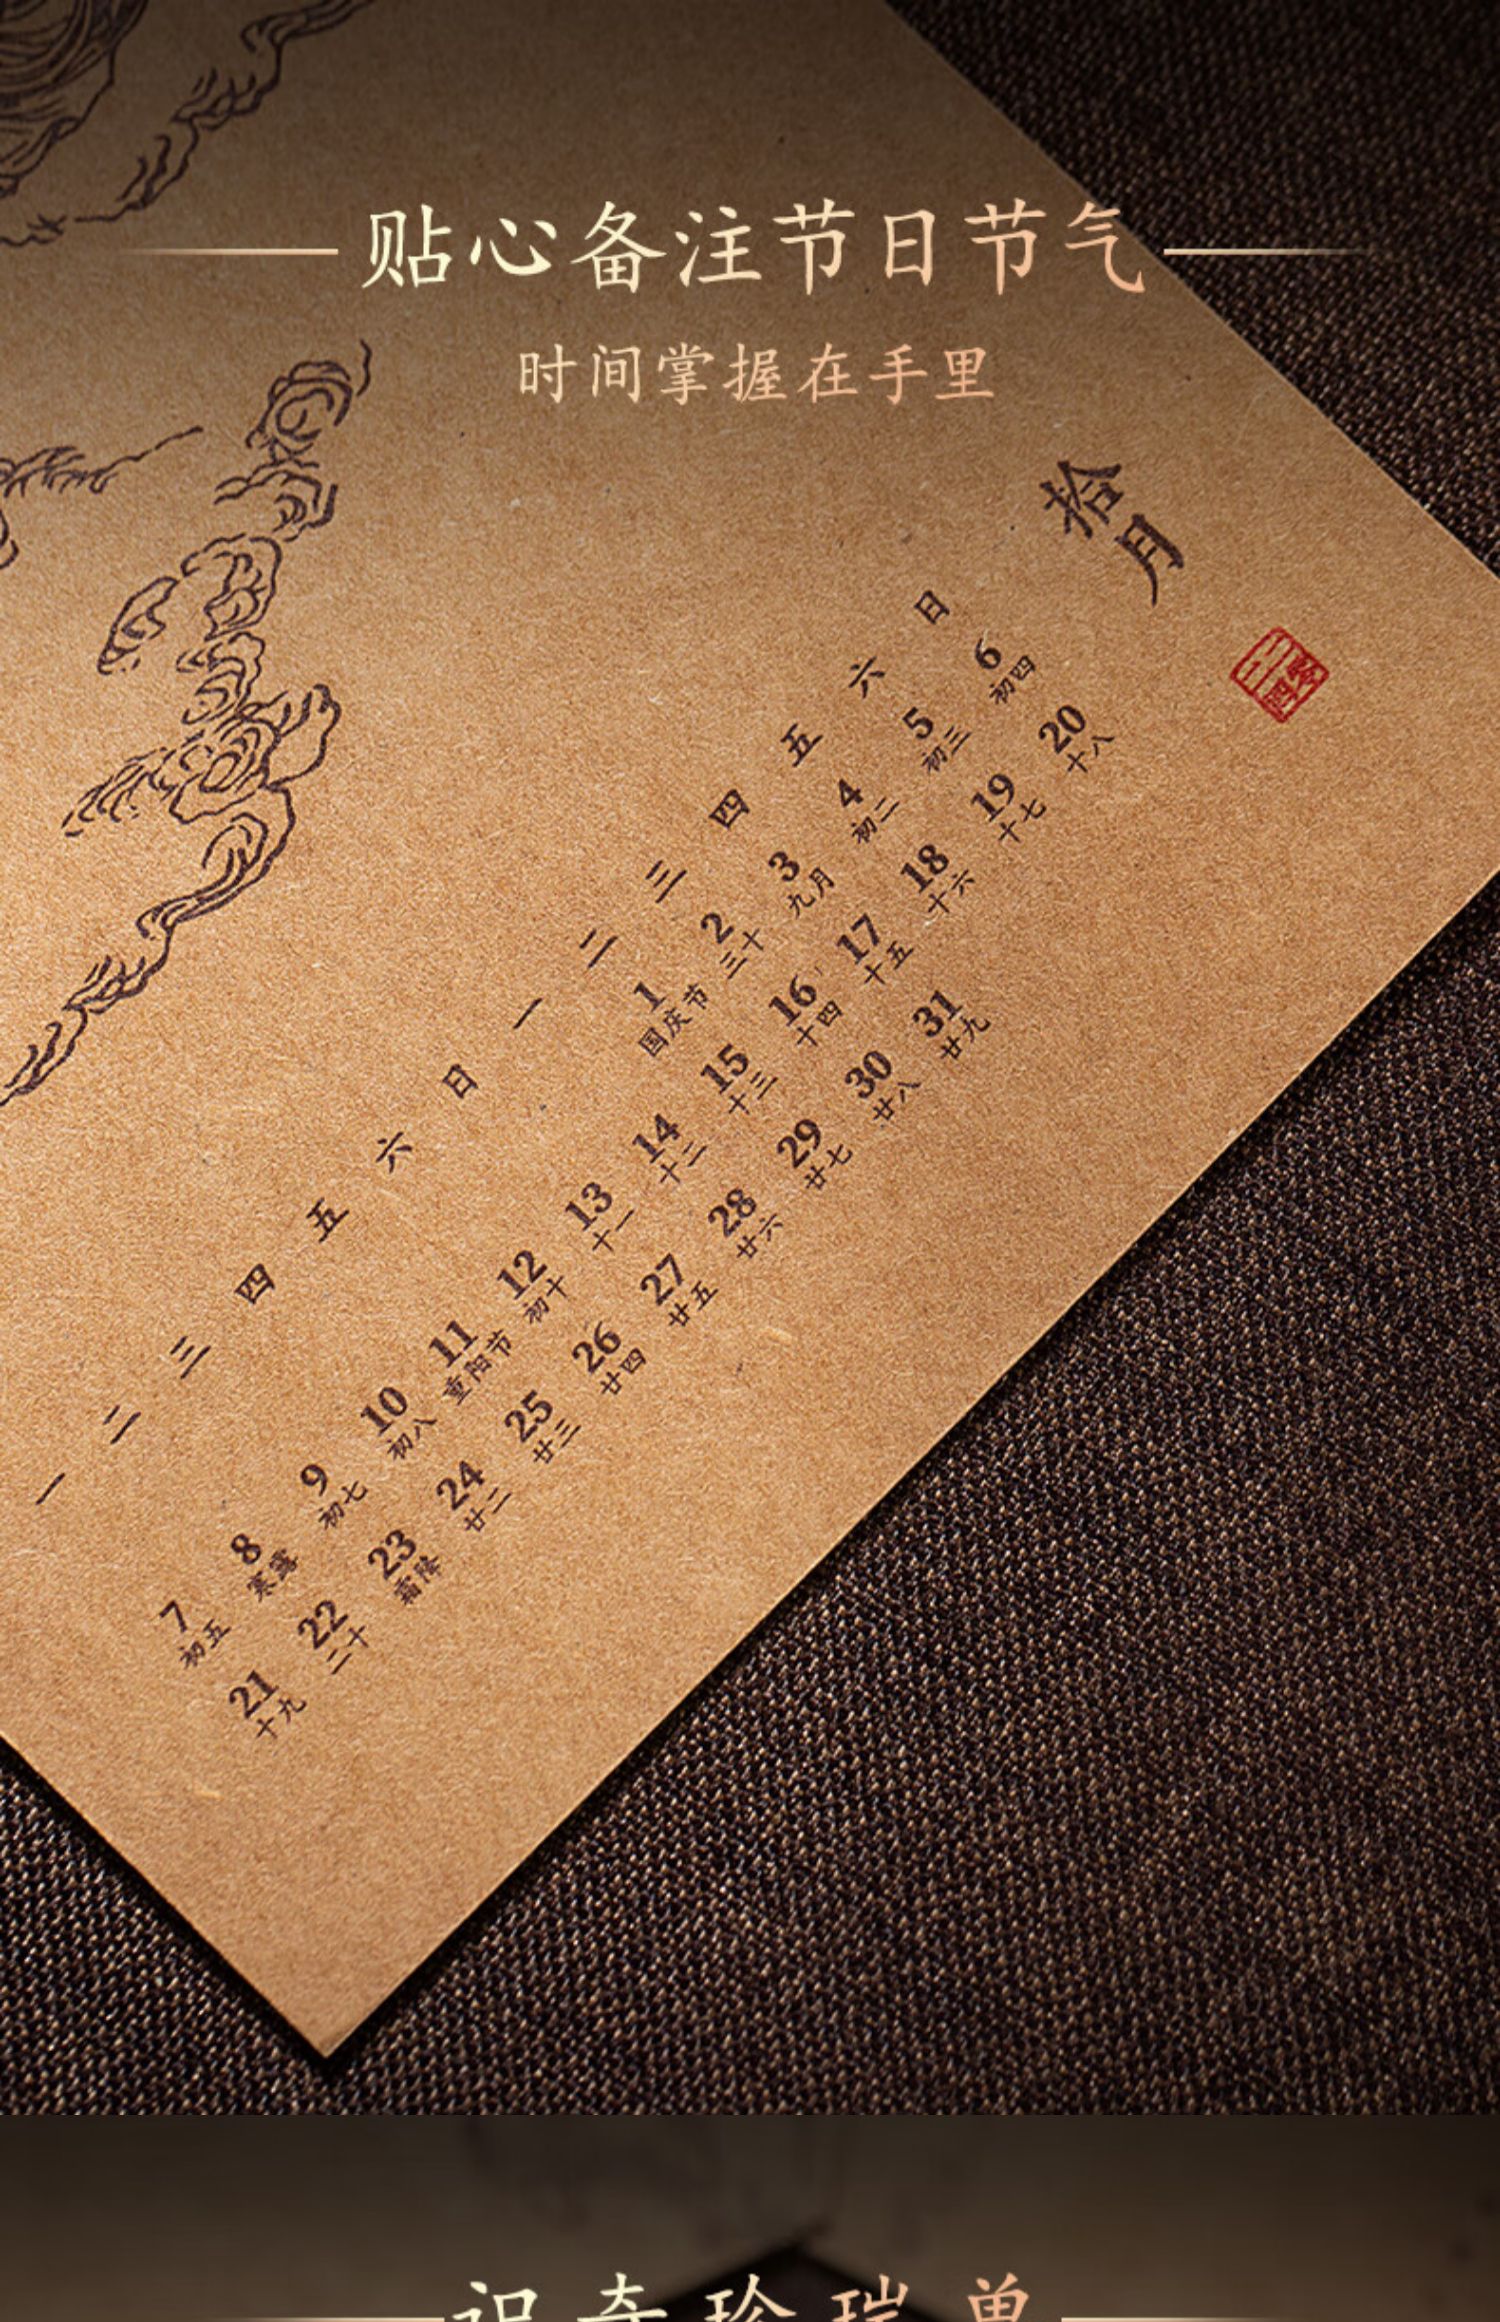 贴心备注节日节气
时间掌握在手里
拾月
二零二四
一 二 三 四 五 六 日 一 二 三 四 五 六 日
1 2 3 4 5 6
国庆节 三十 九月 初二 初三 初四
7 8 9 10 11 12 13 14 15 16 17 18 19 20
初五 寒露 初七 初八 重阳节 初十 十一 十二 十三 十四 十五 十六 十七 十八
21 22 23 24 25 26 27 28 29 30 31
十九 二十 霜降 廿二 廿三 廿四 廿五 廿六 廿七 廿八 廿九
识奇珍瑞兽